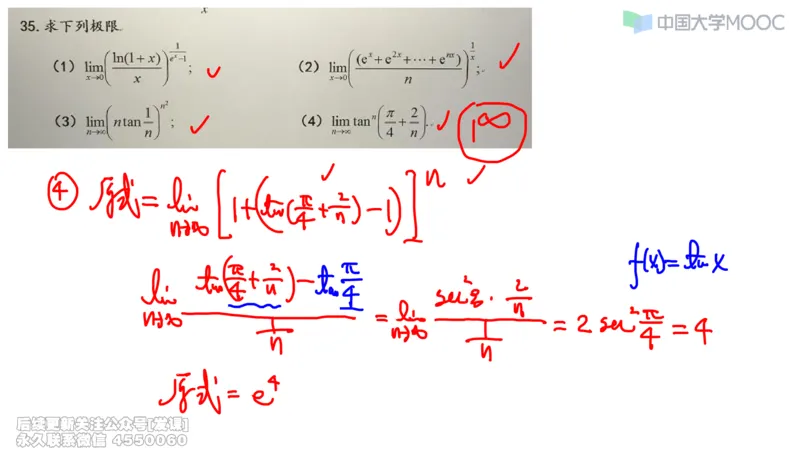 x
中国大学MOOC
35. 求下列极限.
(1) lim_{x→0} (ln(1+x)/x)^{1/(e^x−1)};
(2) lim_{x→0} ((e^x+e^{2x}+⋯+e^{nx})/n)^{1/x};
(3) lim_{n→∞} (n tan 1/n)^{n²};
(4) lim_{n→∞} tan^n (π/4 + 2/n).
1^∞
④ 原式 = lim_{n→∞} [1+(tan(π/4+2/n)−1)]^n
f(x)=tan x
lim_{n→∞} (tan(π/4+2/n)−tan π/4)/(1/n) = lim_{n→∞} (sec²ξ · 2/n)/(1/n) = 2 sec² π/4 = 4
原式 = e^4
后续更新关注公众号[发课]
永久联系微信 4550060